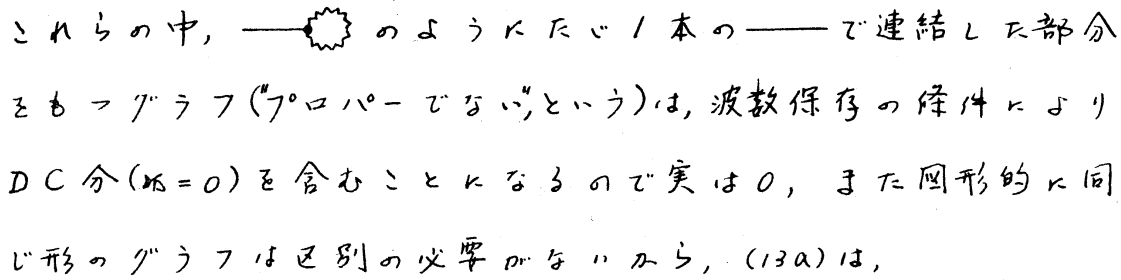 これらの中, のようにただ1本の——で連結した部分
をもつグラフ("プロパーでない"という)は, 波数保存の条件により
DC分(k=0)を含むことになるので実は0, また図形的に同
じ形のグラフは区別の必要がないから, (13a)は,